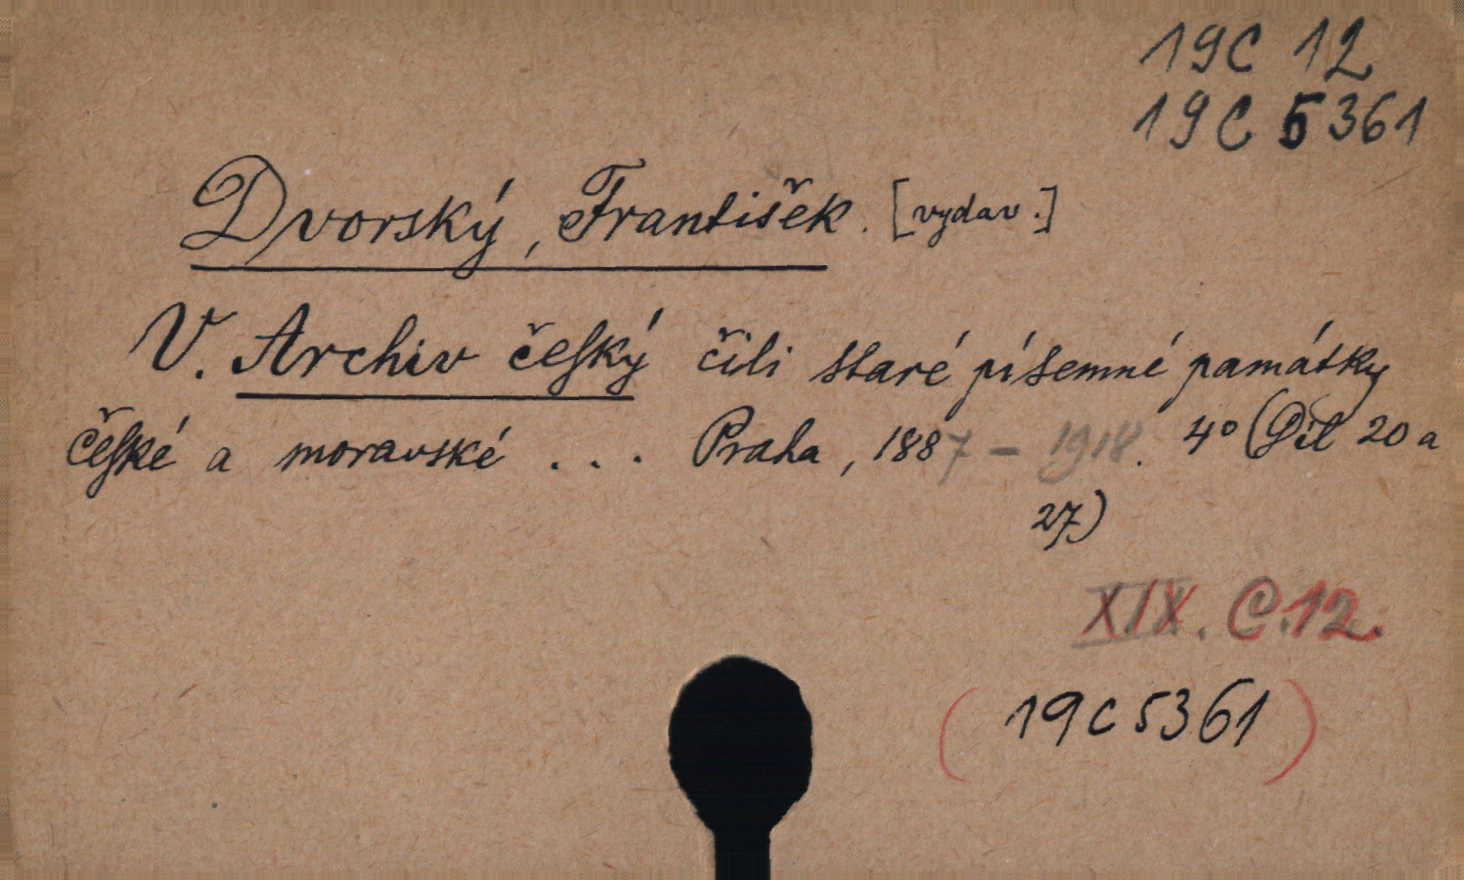 19C 12
19C 5361
Dvorský, František. [vydav.]
V. Archiv český čili staré písemné památky
české a moravské ... Praha, 1887 - 1918. 4° (Díl 20 a
27)
XIX. C.12.
(19C5361)